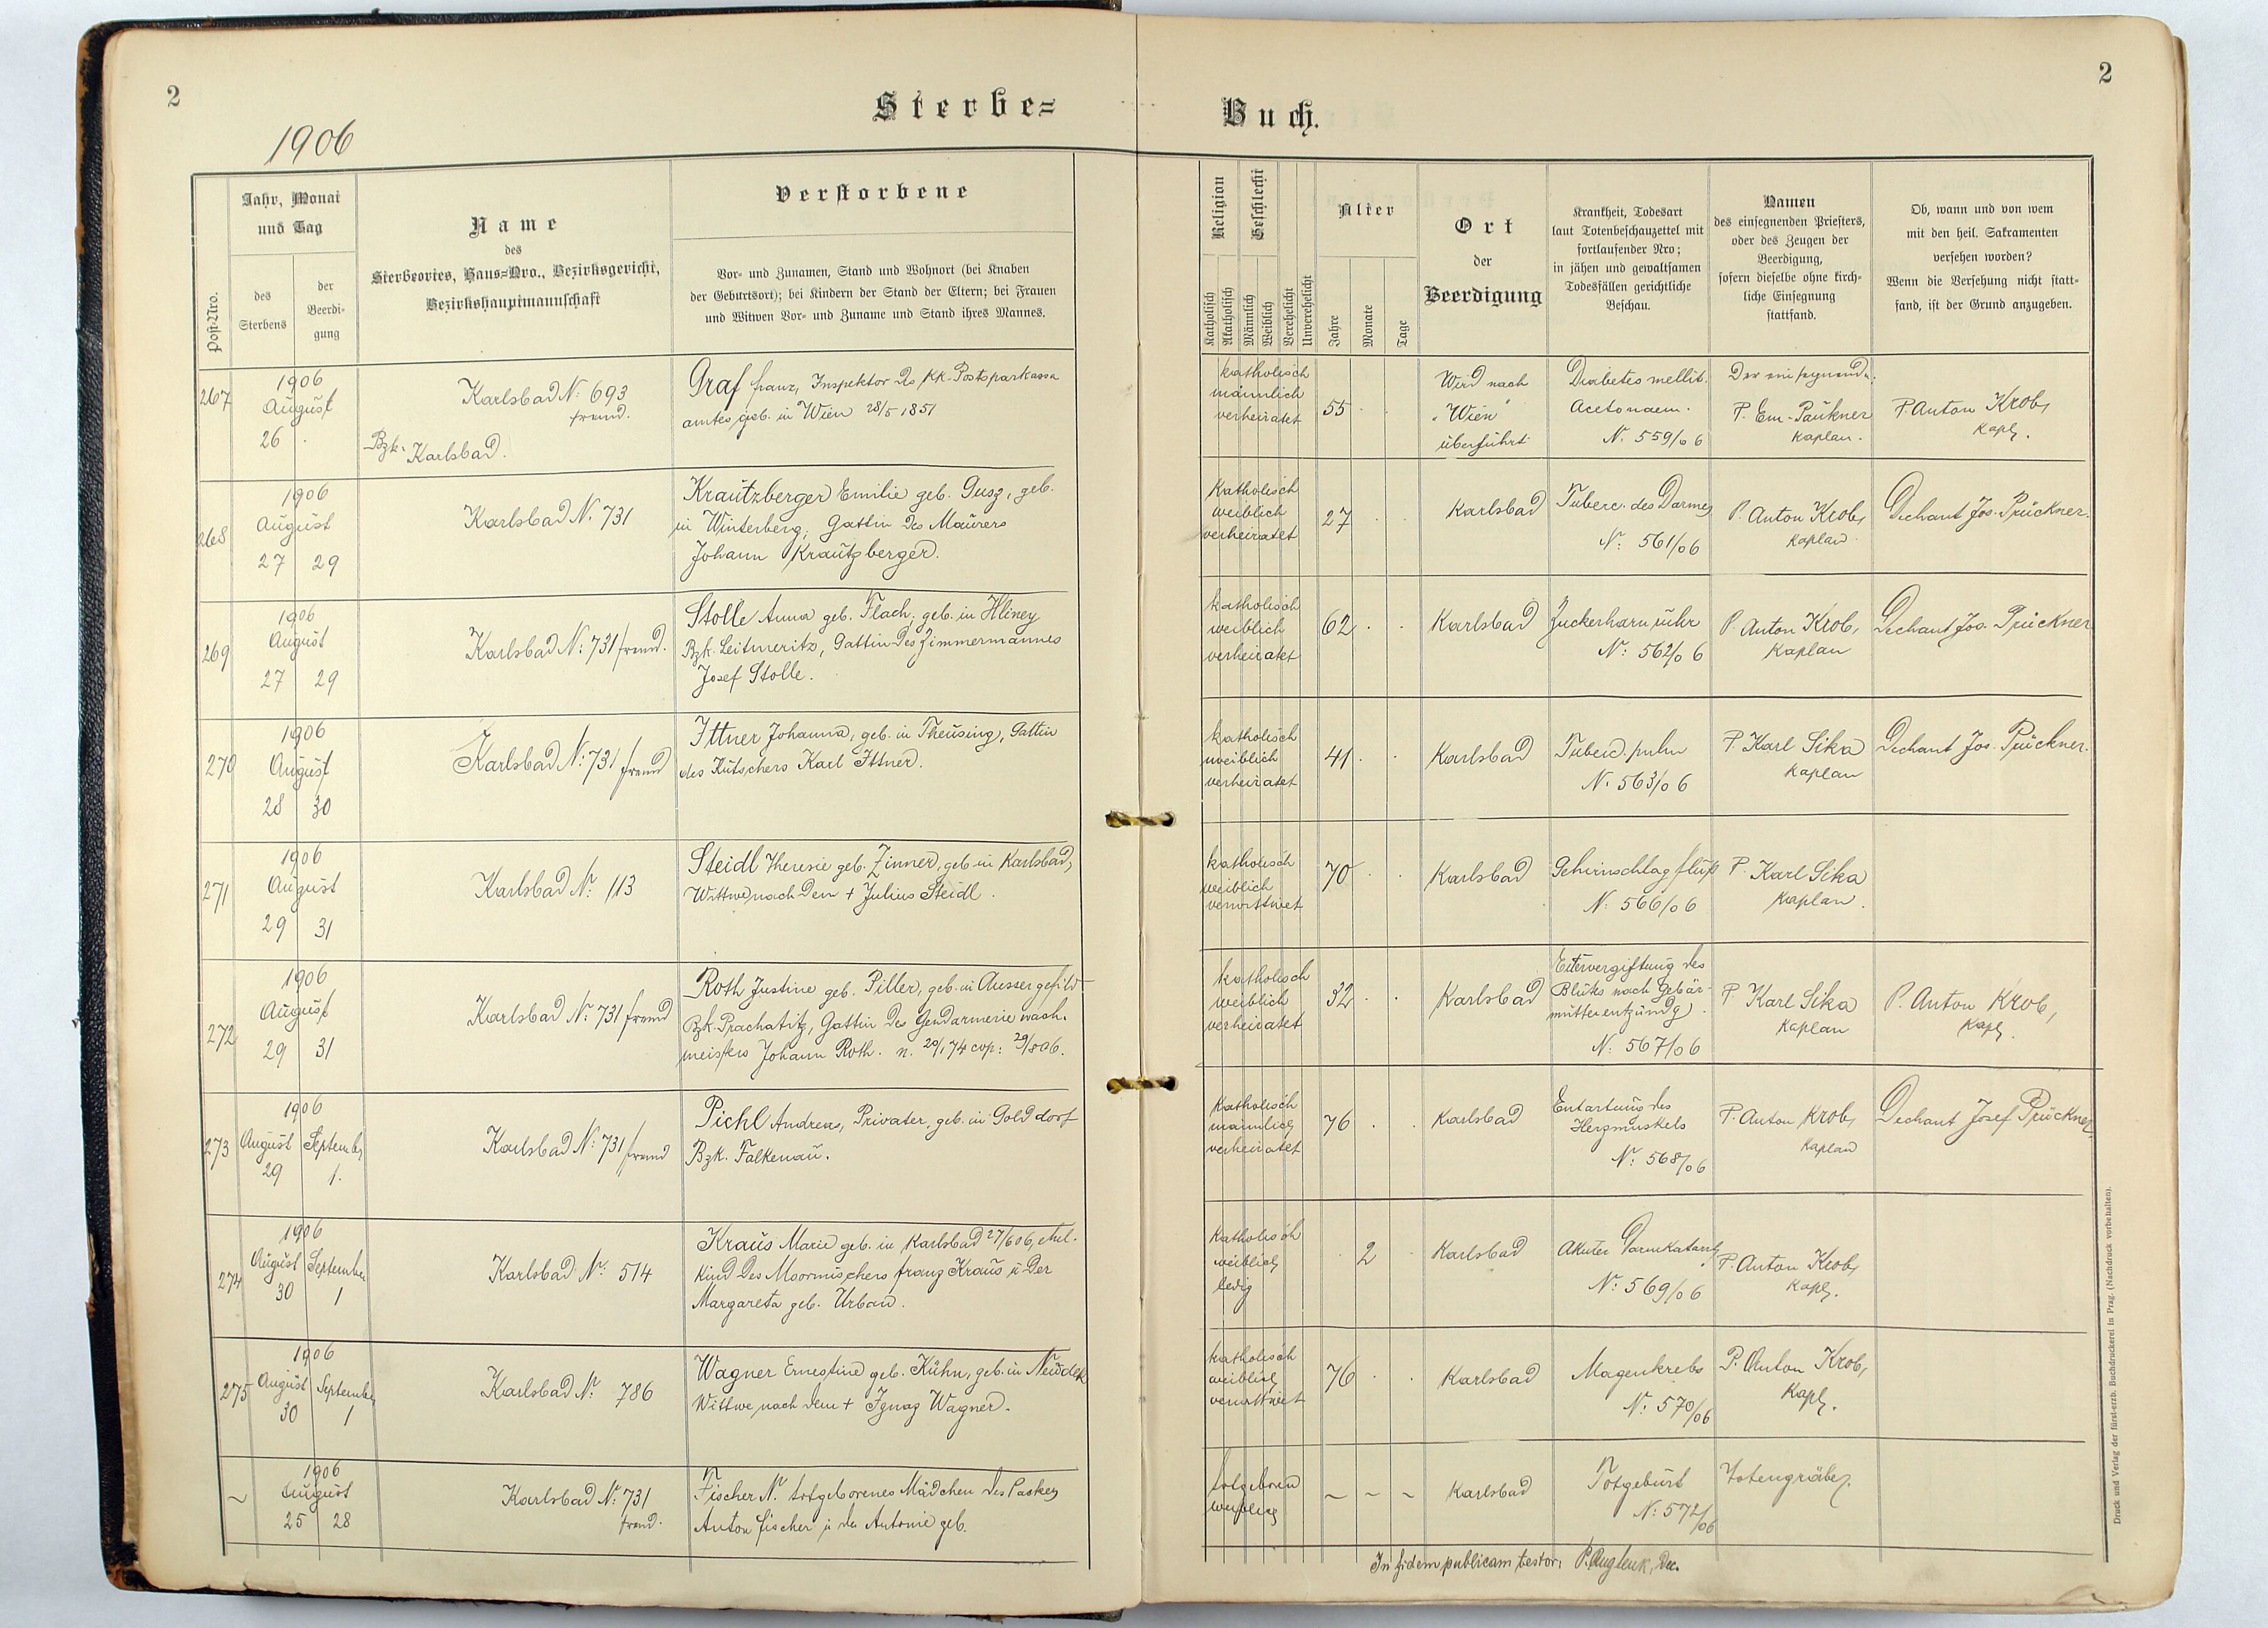 2
Sterbe=
Buch.
2
1906
Post-Nro.
Jahr, Monat
und Tag
des
Sterbens
der
Beerdi-
gung
Name
des
Sterbeortes, Haus=Nro., Bezirksgericht,
Bezirkshauptmannschaft
Verstorbene
Vor- und Zunamen, Stand und Wohnort (bei Knaben
der Geburtsort); bei Kindern der Stand der Eltern; bei Frauen
und Witwen Vor- und Zuname und Stand ihres Mannes.
Religion
Geschlecht
Katholisch
Akatholisch
Männlich
Weiblich
Verehelicht
Unverehelicht
Alter
Jahre
Monate
Tage
Ort
der
Beerdigung
Krankheit, Todesart
laut Totenbeschauzettel mit
fortlaufender Nro;
in jähen und gewaltsamen
Todesfällen gerichtliche
Beschau.
Namen
des einsegnenden Priesters,
oder des Zeugen der
Beerdigung,
sofern dieselbe ohne kirch-
liche Einsegnung
stattfand.
Ob, wann und von wem
mit den heil. Sakramenten
versehen worden?
Wenn die Versehung nicht statt-
fand, ist der Grund anzugeben.
267
1906
August
26 .
Karlsbad N: 693
fremd.
Bzk. Karlsbad.
Graf Franz, Inspektor des KK. Postsparkassa
amtes, geb. in Wien 28/5 1851
katholisch
männlich
verheiratet
55 . .
Wird nach
"Wien"
überführt
Diabetes mellit.
Acetonaem.
N: 559/06
Der einsegnende:
P. Em. Paukner
Kaplan.
P. Anton Krob,
Kapl.
268
1906
August
27 29
Karlsbad N. 731
Krautzberger Emilie geb. Gusz, geb.
in Winterberg; Gattin des Maurers
Johann Krautzberger.
Katholisch
weiblich
verheiratet
27 . .
Karlsbad
Tuberc. des Darmes
N: 561/06
P. Anton Krob,
Kaplan
Dechant Jos. Prückner.
269
1906
August
27 29
Karlsbad N: 731 fremd.
Stolle Anna geb. Flach, geb. in Hliney
Bzk. Leitmeritz, Gattin des Zimmermannes
Josef Stolle.
katholisch
weiblich
verheiratet
62 . .
Karlsbad
Zuckerharnruhr
N: 562/06
P. Anton Krob,
Kaplan
Dechant Jos. Prückner
270
1906
August
28 30
Karlsbad N: 731 fremd
Ittner Johanna, geb. in Theusing, Gattin
des Kutschers Karl Ittner.
katholisch
weiblich
verheiratet
41 . .
Karlsbad
Tuberc. pulm
N. 563/06
P. Karl Sika
Kaplan
Dechant Jos. Prückner.
271
1906
August
29 31
Karlsbad N: 113
Steidl Theresie geb. Zinner, geb in Karlsbad,
Wittwe nach dem + Julius Steidl.
katholisch
weiblich
verwittwet
70 . .
Karlsbad
Gehirnschlagfluß
N: 566/06
P. Karl Sika
Kaplan.
272
1906
August
29 31
Karlsbad N: 731 fremd
Roth Justine geb. Piller, geb. in Aussergefild
Bzk. Prachatitz, Gattin des Gendarmerie wach-
meisters Johann Roth. n. 20/1 74 cop: 29/8 06.
katholisch
weiblich
verheiratet
32 . .
Karlsbad
Eitervergiftung des
Bluts nach Gebär-
mutterentzündg.
N: 567/06
P. Karl Sika
Kaplan
P. Anton Krob,
Kapl.
273
1906
August September
29 1.
Karlsbad N: 731 fremd
Pichl Andreas, Privater, geb. in Golddorf
Bzk. Falkenau.
Katholisch
männlich
verheiratet
76 . .
Karlsbad
Entartung des
Herzmuskels
N: 568/06
P. Anton Krob,
Kaplan
Dechant Josef Prückner.
274
1906
August September
30 1
Karlsbad N: 514
Kraus Marie geb. in Karlsbad 27/6 06, ehel.
Kind des Moormischers Franz Kraus u. der
Margareta geb. Urban.
Katholisch
weiblich
ledig
. 2 .
Karlsbad
Akuter Darmkatarrh
N: 569/06
P. Anton Krob,
Kapl.
275
1906
August September
30 1
Karlsbad N: 786
Wagner Ernestine geb. Kühn, geb. in Neudek
Wittwe nach dem + Ignaz Wagner.
katholisch
weiblich
verwittwet
76 . .
Karlsbad
Magenkrebs
N: 570/06
P. Anton Krob,
Kapl.
~
1906
August
25 28
Karlsbad N: 731
fremd.
Fischer N. totgeborenes Mädchen des
Anton Fischer u. der Antonie geb.
totgeboren
weiblich
~ ~ ~
Karlsbad
Totgeburt
N: 572/06
Totengräber.
In fidem publicam testor:
Druck und Verlag der fürst-erzb. Buchdruckerei in Prag. (Nachdruck vorbehalten).